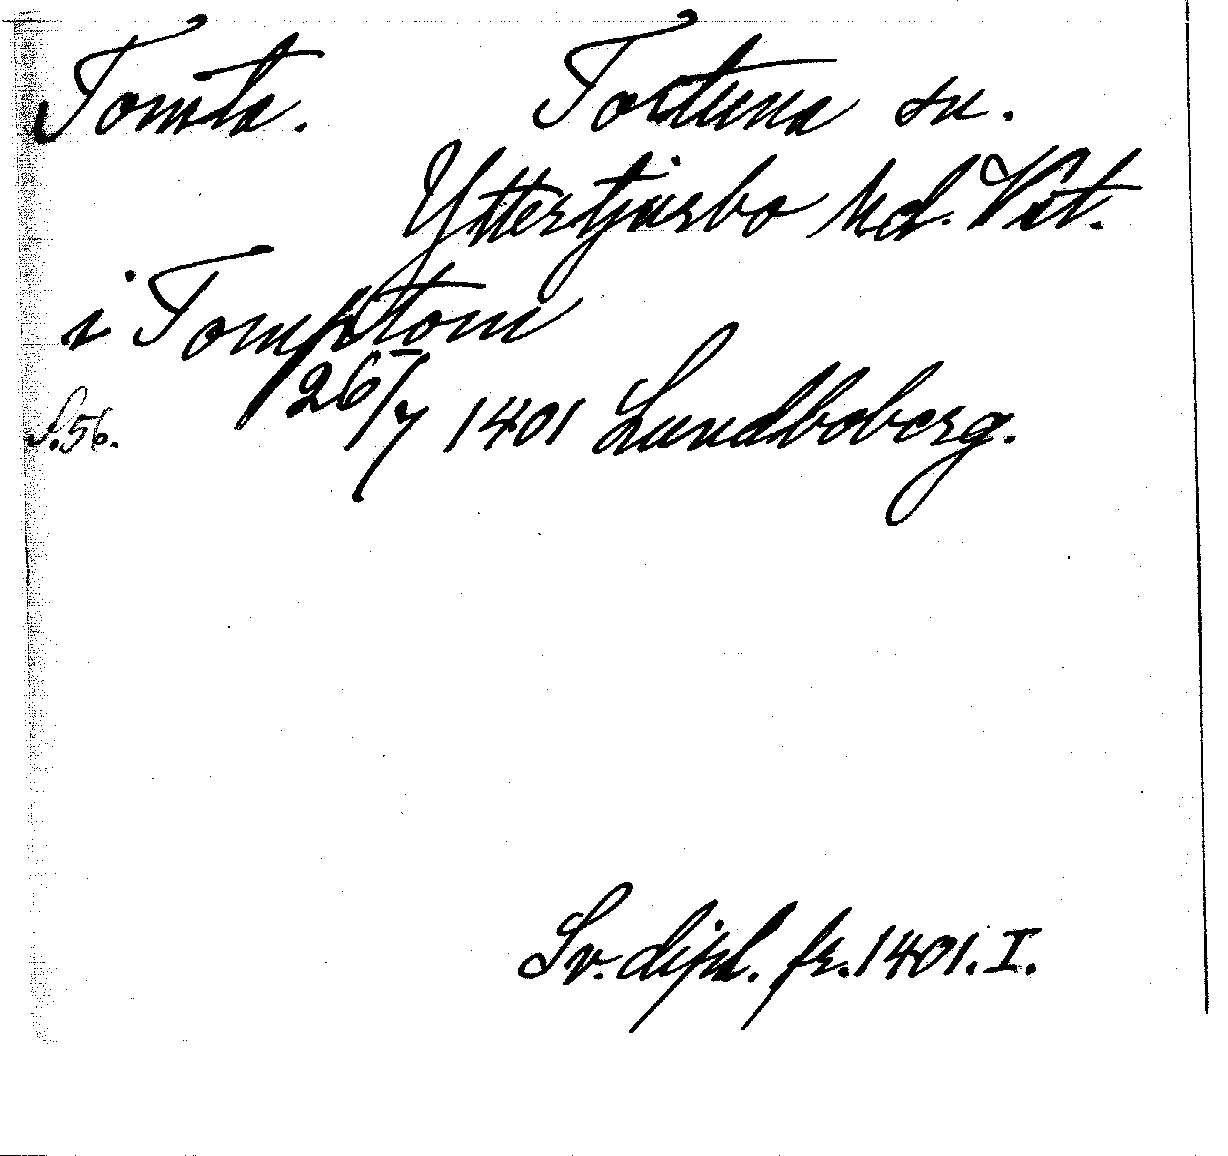 Tomta. Tortuna sn.
Yttertjurbo hd. Vst.
i Tomptom
S. 56. 26/7 1401 Lundboberg.
Sv. dipl. fr. 1401. I.